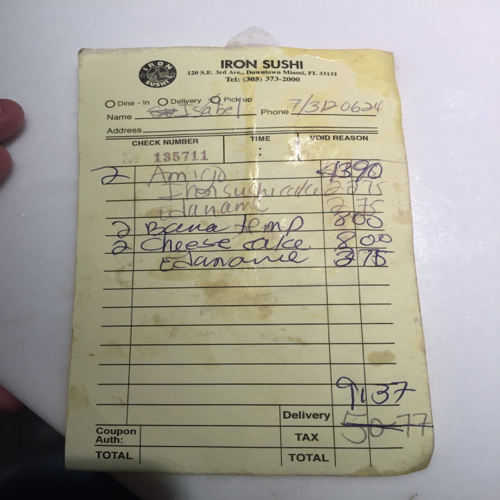 IRON SUSHI
IRON SUSHI
120 S.E. 3rd Ave., Downtown Miami, FL 33131
Tel: (305) 373-2000
Dine - In Delivery Pickup
Name Isabel Phone 7/312-0624
Address
CHECK NUMBER TIME VOID REASON
No 135711 :
2 Amigo 43 90
Iron sushi cake 20 75
edaname 3 75
2 Bana temp 8 00
2 Cheese cake 8.00
edaname 3 75
91.37
Delivery 50.77
Coupon
Auth: TAX
TOTAL TOTAL